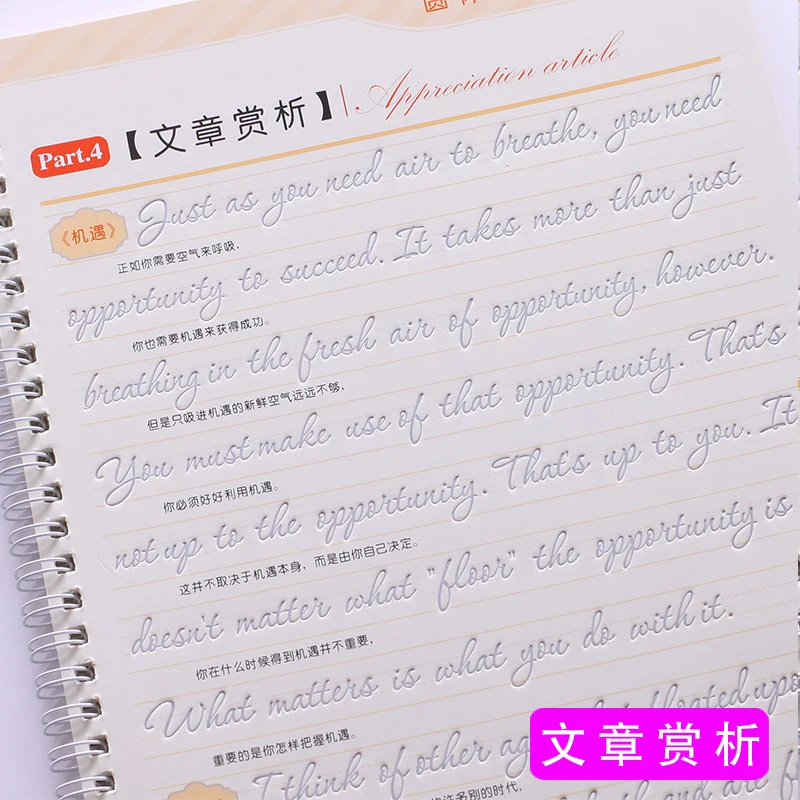 Part.4 【文章赏析】 Appreciation article
《机遇》 Just as you need air to breathe, you need
正如你需要空气来呼吸，
opportunity to succeed. It takes more than just
你也需要机遇来获得成功。
breathing in the fresh air of opportunity, however.
但是只吸进机遇的新鲜空气远远不够，
You must make use of that opportunity. That's
你必须好好利用机遇。
not up to the opportunity. That's up to you. It
这并不取决于机遇本身，而是由你自己决定。
doesn't matter what "floor" the opportunity is
你在什么时候得到机遇并不重要，
What matters is what you do with it.
重要的是你怎样把握机遇。
I think of other floated upo
许多别的时代，
and are f
文章赏析